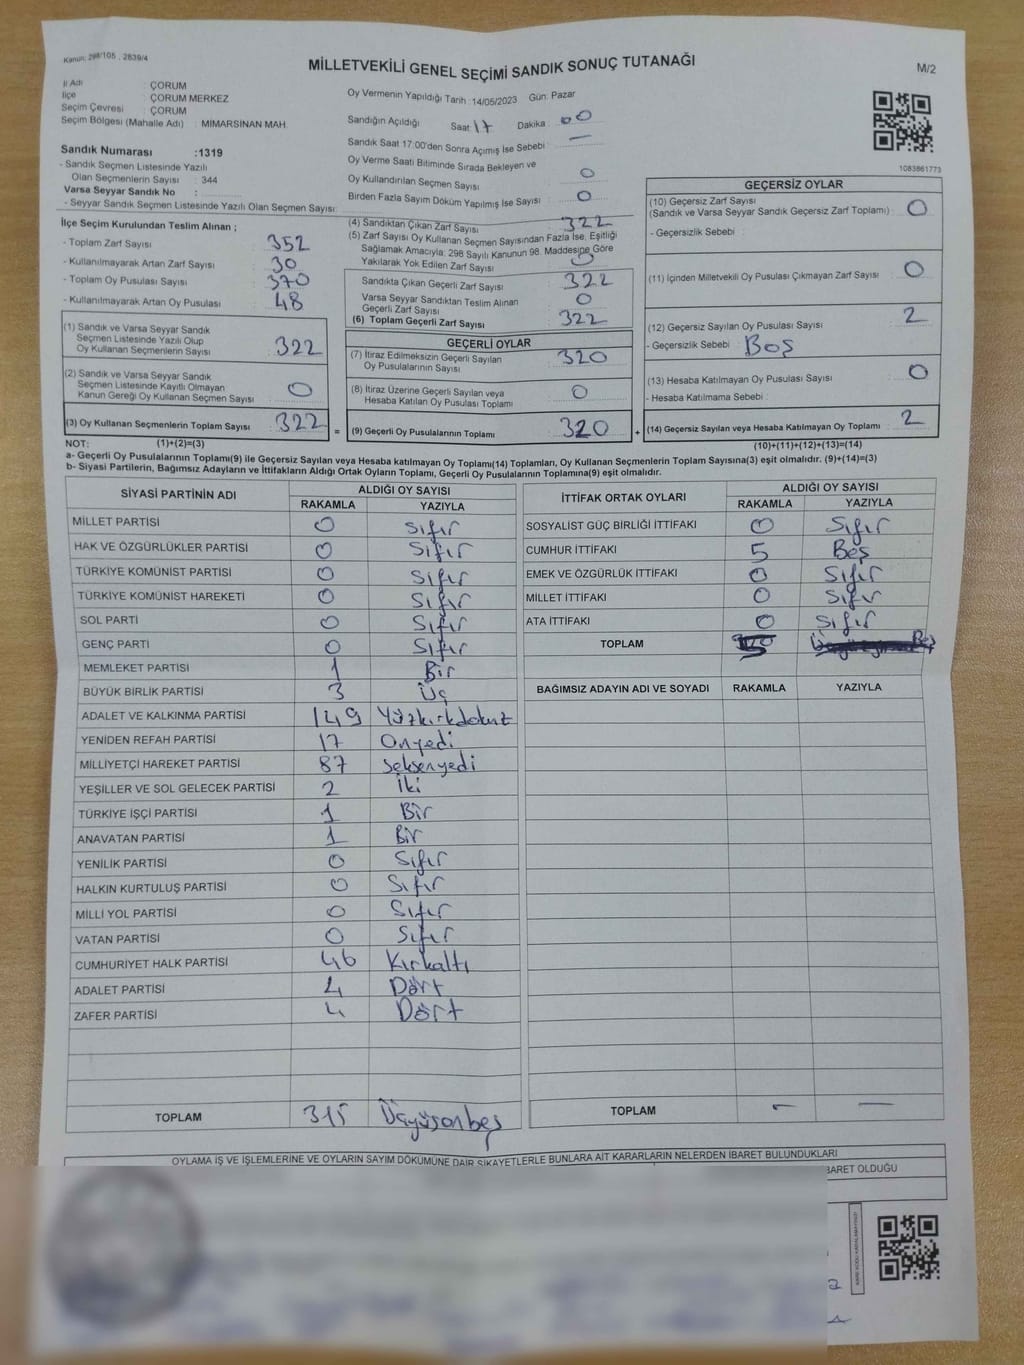 Kanun: 298/105 , 2839/4
MİLLETVEKİLİ GENEL SEÇİMİ SANDIK SONUÇ TUTANAĞI
M/2
İl Adı : ÇORUM
İlçe : ÇORUM MERKEZ
Seçim Çevresi : ÇORUM
Seçim Bölgesi (Mahalle Adı) : MİMARSİNAN MAH.
Oy Vermenin Yapıldığı Tarih :14/05/2023 Gün: Pazar
Sandığın Açıldığı Saat 17 Dakika : 00
Sandık Saat 17:00'den Sonra Açımış İse Sebebi : —
Oy Verme Saati Bitiminde Sırada Bekleyen ve
Oy Kullandırılan Seçmen Sayısı : 0
Birden Fazla Sayım Döküm Yapılmış İse Sayısı : 0
1083861773
Sandık Numarası :1319
- Sandık Seçmen Listesinde Yazılı
Olan Seçmenlerin Sayısı : 344
Varsa Seyyar Sandık No :
- Seyyar Sandık Seçmen Listesinde Yazılı Olan Seçmen Sayısı:
İlçe Seçim Kurulundan Teslim Alınan ;
- Toplam Zarf Sayısı : 352
- Kullanılmayarak Artan Zarf Sayısı : 30
- Toplam Oy Pusulası Sayısı : 370
- Kullanılmayarak Artan Oy Pusulası : 48
(1) Sandık ve Varsa Seyyar Sandık
Seçmen Listesinde Yazılı Olup
Oy Kullanan Seçmenlerin Sayısı : 322
(2) Sandık ve Varsa Seyyar Sandık
Seçmen Listesinde Kayıtlı Olmayan
Kanun Gereği Oy Kullanan Seçmen Sayısı : 0
(3) Oy Kullanan Seçmenlerin Toplam Sayısı : 322
(4) Sandıktan Çıkan Zarf Sayısı : 322
(5) Zarf Sayısı Oy Kullanan Seçmen Sayısından Fazla İse, Eşitliği
Sağlamak Amacıyla; 298 Sayılı Kanunun 98. Maddesine Göre
Yakılarak Yok Edilen Zarf Sayısı : 0
Sandıkta Çıkan Geçerli Zarf Sayısı : 322
Varsa Seyyar Sandıktan Teslim Alınan
Geçerli Zarf Sayısı : 0
(6) Toplam Geçerli Zarf Sayısı : 322
GEÇERLİ OYLAR
(7) İtiraz Edilmeksizin Geçerli Sayılan
Oy Pusulalarının Sayısı : 320
(8) İtiraz Üzerine Geçerli Sayılan veya
Hesaba Katılan Oy Pusulası Toplamı : 0
= (9) Geçerli Oy Pusulalarının Toplamı : 320 +
GEÇERSİZ OYLAR
(10) Geçersiz Zarf Sayısı
(Sandık ve Varsa Seyyar Sandık Geçersiz Zarf Toplamı) : 0
- Geçersizlik Sebebi :
(11) İçinden Milletvekili Oy Pusulası Çıkmayan Zarf Sayısı : 0
(12) Geçersiz Sayılan Oy Pusulası Sayısı : 2
- Geçersizlik Sebebi : Boş
(13) Hesaba Katılmayan Oy Pusulası Sayısı : 0
- Hesaba Katılmama Sebebi :
(14) Geçersiz Sayılan veya Hesaba Katılmayan Oy Toplamı : 2
NOT: (1)+(2)=(3)
(10)+(11)+(12)+(13)=(14)
a- Geçerli Oy Pusulalarının Toplamı(9) ile Geçersiz Sayılan veya Hesaba katılmayan Oy Toplamı(14) Toplamları, Oy Kullanan Seçmenlerin Toplam Sayısına(3) eşit olmalıdır. (9)+(14)=(3)
b- Siyasi Partilerin, Bağımsız Adayların ve İttifakların Aldığı Ortak Oyların Toplamı, Geçerli Oy Pusulalarının Toplamına(9) eşit olmalıdır.
SİYASİ PARTİNİN ADI ALDIĞI OY SAYISI
RAKAMLA YAZIYLA
MİLLET PARTİSİ 0 Sıfır
HAK VE ÖZGÜRLÜKLER PARTİSİ 0 Sıfır
TÜRKİYE KOMÜNİST PARTİSİ 0 Sıfır
TÜRKİYE KOMÜNİST HAREKETİ 0 Sıfır
SOL PARTİ 0 Sıfır
GENÇ PARTİ 0 Sıfır
MEMLEKET PARTİSİ 1 Bir
BÜYÜK BİRLİK PARTİSİ 3 Üç
ADALET VE KALKINMA PARTİSİ 149 Yüzkırkdokuz
YENİDEN REFAH PARTİSİ 17 Onyedi
MİLLİYETÇİ HAREKET PARTİSİ 87 Seksenyedi
YEŞİLLER VE SOL GELECEK PARTİSİ 2 İki
TÜRKİYE İŞÇİ PARTİSİ 1 Bir
ANAVATAN PARTİSİ 1 Bir
YENİLİK PARTİSİ 0 Sıfır
HALKIN KURTULUŞ PARTİSİ 0 Sıfır
MİLLİ YOL PARTİSİ 0 Sıfır
VATAN PARTİSİ 0 Sıfır
CUMHURİYET HALK PARTİSİ 46 Kırkaltı
ADALET PARTİSİ 4 Dört
ZAFER PARTİSİ 4 Dört
TOPLAM 315 Üçyüzonbeş
İTTİFAK ORTAK OYLARI ALDIĞI OY SAYISI
RAKAMLA YAZIYLA
SOSYALİST GÜÇ BİRLİĞİ İTTİFAKI 0 Sıfır
CUMHUR İTTİFAKI 5 Beş
EMEK VE ÖZGÜRLÜK İTTİFAKI 0 Sıfır
MİLLET İTTİFAKI 0 Sıfır
ATA İTTİFAKI 0 Sıfır
TOPLAM 5 Beş
BAĞIMSIZ ADAYIN ADI VE SOYADI RAKAMLA YAZIYLA
TOPLAM – —
OYLAMA İŞ VE İŞLEMLERİNE VE OYLARIN SAYIM DÖKÜMÜNE DAİR ŞİKAYETLERLE BUNLARA AİT KARARLARIN NELERDEN İBARET BULUNDUKLARI
BARET OLDUĞU